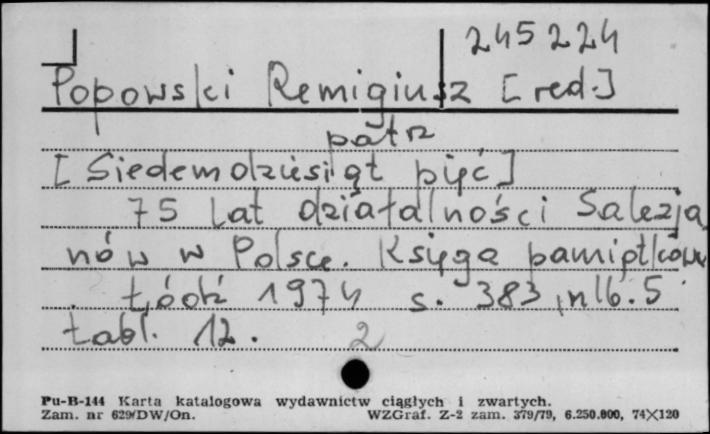 245224
Popowski Remigiusz [red.]
patrz
[Siedemdziesiąt pięć]
75 lat działalności Salezja
nów w Polsce. Księga pamiątkowa
Łódź 1974 s. 383, nlb. 5
tabl. 12. 2
Pu-B-144 Karta katalogowa wydawnictw ciągłych i zwartych.
Zam. nr 629/DW/On. WZGraf. Z-2 zam. 379/79, 6.250.000, 74×120